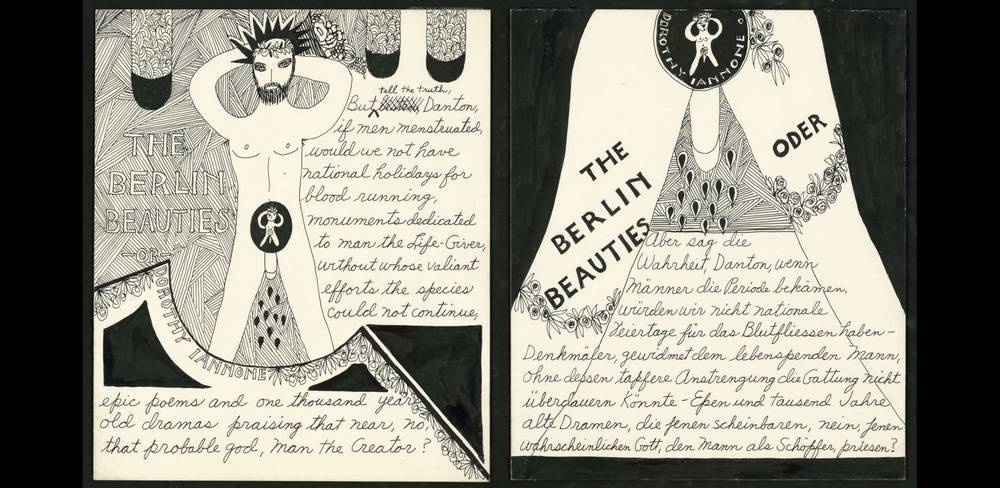 THE
BERLIN
BEAUTIES
-OR-
DOROTHY IANNONE
tell the truth,
But Danton,
if men menstruated,
would we not have
national holidays for
blood running,
monuments dedicated
to man the Life-Giver,
without whose valiant
efforts the species
could not continue,
epic poems and one thousand year
old dramas praising that near, no,
that probable god, Man The Creator?
DOROTHY IANNONE
THE
BERLIN
BEAUTIES
ODER
Aber sag die
Wahrheit, Danton, wenn
Männer die Periode bekämen,
würden wir nicht nationale
Feiertage für das Blutfliessen haben-
Denkmäler, gewidmet dem lebenspenden Mann,
ohne dessen tapfere Anstrengung die Gattung nicht
überdauern könnte - Epen und tausend Jahre
alte Dramen, die jenen scheinbaren, nein, jenen
wahrscheinlichen Gott, den Mann als Schöpfer, priesen?